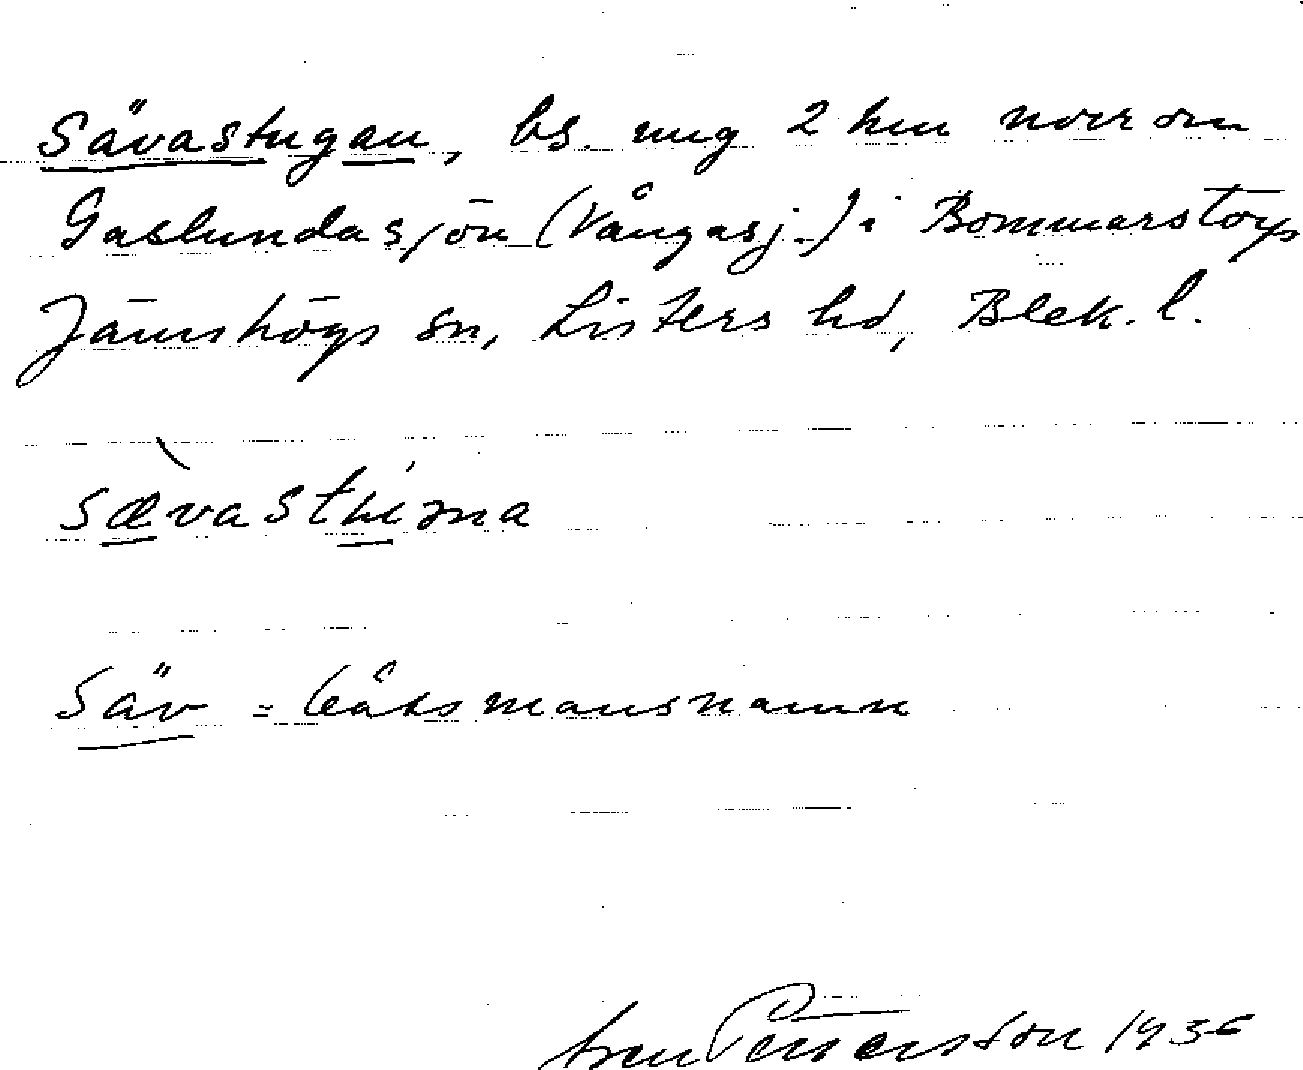 Sävastugan, bs. ung 2 km norr om
Gaslundasjön (Vångasj.) i Bommerstorp
Jämshögs sn, Listers hd, Blek. l.
sævasthi
Säv = båtsmansnamn
Petersson 1936